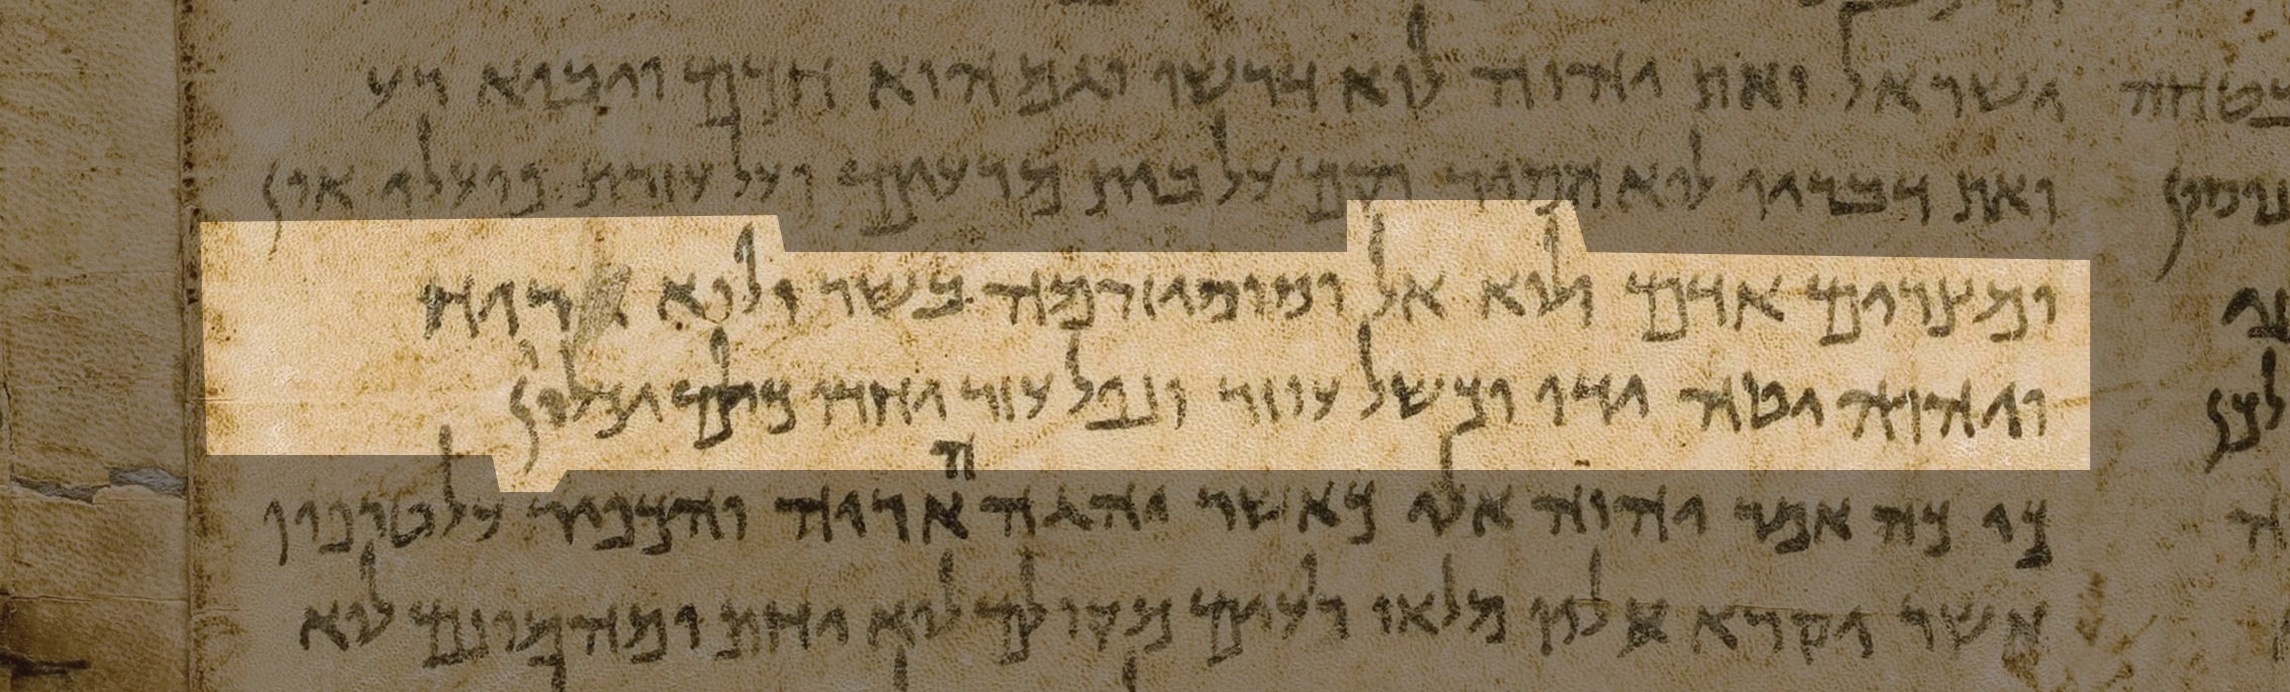 ישראל ואת יהוה לוא דרשו וגם הוא חכם ויביא רע
ואת דבריו לוא הסיר וקם על בית מרעים ועל עוזרת פועלי און
ומצרים אדם ולוא אל וסוסיהמה בשר ולוא רוח
ויהוה יטה ידו וכשל עוזר ונפל עזור יחדו כולם יכליון
כי כה אמר יהוה אלי כאשר יהגה האריה והכפיר על טרפיו
אשר יקרא אליו מלאו רעים מקולם לוא יחת ומהמונם לוא